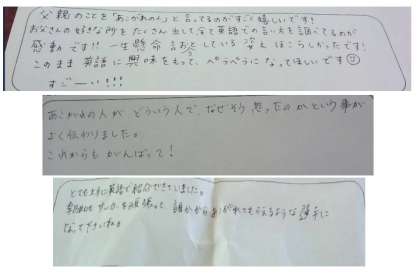 父親のことを「あこがれの人」と言ってるのがすごく嬉しいです!
お父さんの好きな所をたくさん出して全て英語での言い方を調べてるのが
感動です!!一生懸命話そうとしている姿もほこらしかったです!
このまま英語に興味をもって、ぺらぺらになってほしいです
すごーい!!!
あこがれの人がどういう人で、なぜそう思ったのかという事が
よく伝わりました。
これからもがんばって!
とても上手に英語で紹介できていました。
サッカーを頑張って、誰かからあこがれてもらえるような選手に
なって下さいね。